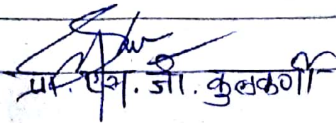 प्रा. एस. जी. कुलकर्णी